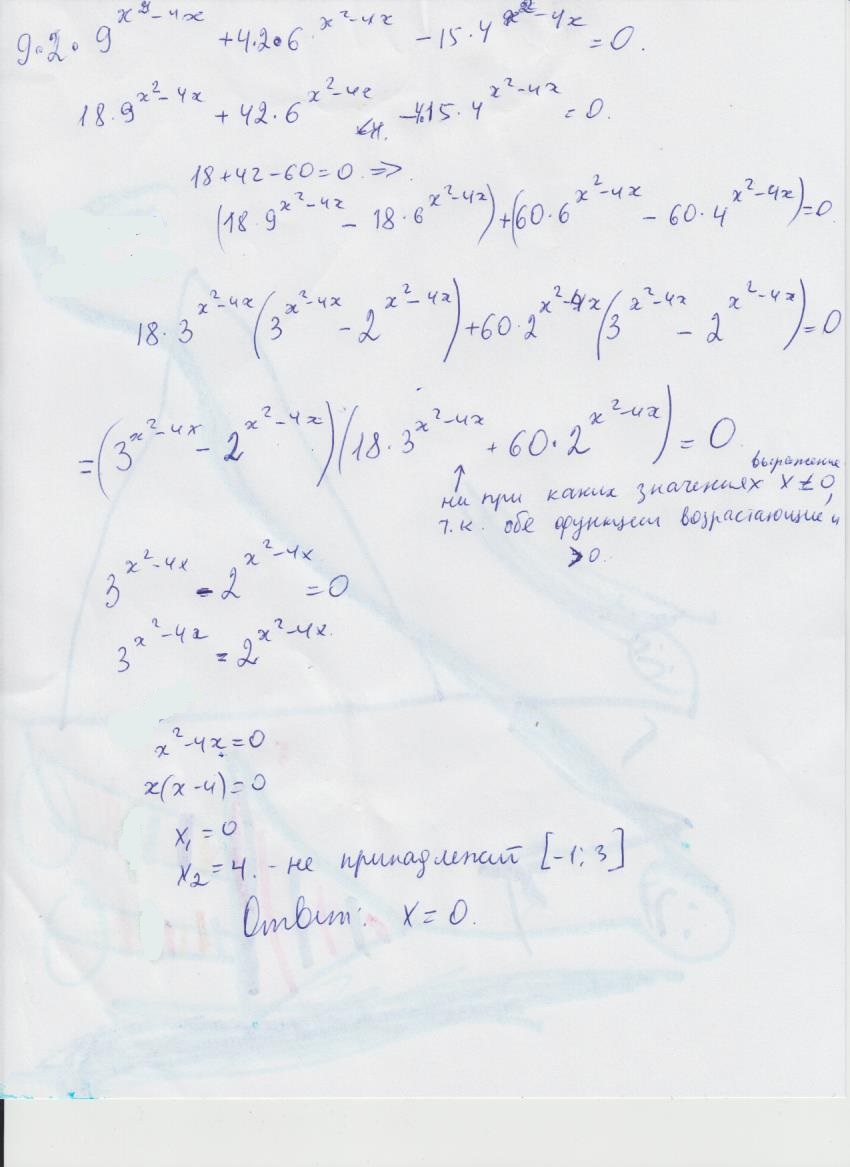 9·2·9^{x²-4x} + 4·2·6^{x²-4x} - 15·4^{x²-4x} = 0.
18·9^{x²-4x} + 42·6^{x²-4x} - 4·15·4^{x²-4x} = 0.
18+42-60=0 ⇒
(18·9^{x²-4x} - 18·6^{x²-4x}) + (60·6^{x²-4x} - 60·4^{x²-4x}) = 0
18·3^{x²-4x}(3^{x²-4x} - 2^{x²-4x}) + 60·2^{x²-4x}(3^{x²-4x} - 2^{x²-4x}) = 0
= (3^{x²-4x} - 2^{x²-4x})(18·3^{x²-4x} + 60·2^{x²-4x}) = 0
↑ выражение
ни при каких значениях x ≠ 0,
т.к. обе функции возрастающие и
>0.
3^{x²-4x} - 2^{x²-4x} = 0
3^{x²-4x} = 2^{x²-4x}
x²-4x=0
x(x-4)=0
x₁ = 0
x₂ = 4. - не принадлежит [-1; 3]
Ответ: x = 0.